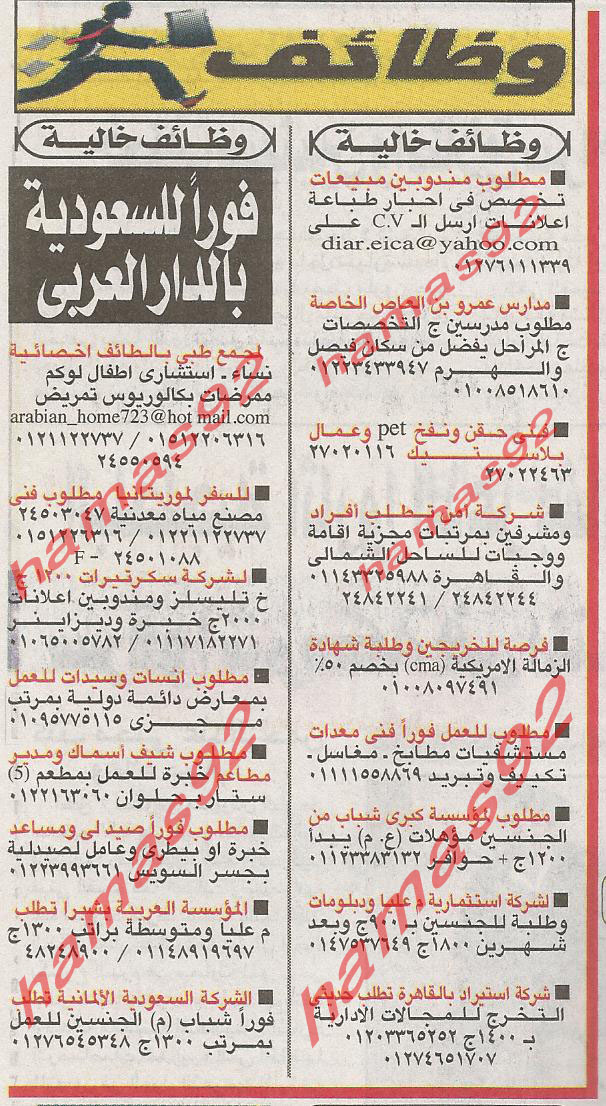 وظائف
وظائف خالية
مطلوب مندوبين مبيعات
تخصص فى احبار طباعة
اعلانات ارسل الـ C.V على
diar.eica@yahoo.com
٠١٢٧٦١١١٣٣٩
مدارس عمرو بن العاص الخاصة
مطلوب مدرسين ج التخصصات
ج المراحل يفضل من سكان فيصل
والهرم ٠١٢٢٣٤٣٣٩٤٧
٠١٠٠٨٥١٨٦١٠
فنى حقن ونفخ pet وعمال
بلاستيك ٢٧٠٢٠١١٦
٢٧٠٢٢٤٦٣
شركة أمن تطلب أفراد
ومشرفين بمرتبات مجزية اقامة
ووجبات للساحل الشمالى
والقاهرة ٠١١٤٣٣٢٥٩٨٨
٢٤٨٤٢٢٤٤ / ٢٤٨٤٢٢٤١
فرصة للخريجين وطلبة شهادة
الزمالة الامريكية (cma) بخصم ٥٠٪
٠١٠٠٨٠٩٧٤٩١
مطلوب للعمل فوراً فنى معدات
مستشفيات مطابخ ـ مغاسل ـ
تكييف وتبريد ٠١١١١٥٥٨٨٦٩
مطلوب لمؤسسة كبرى شباب من
الجنسين مؤهلات (ع. م) يبدأ
١٢٠٠ج + حوافز ٠١١٢٣٣٨٣١٣٢
لشركة استثمارية م عليا ودبلومات
وطلبة للجنسين بـ ٩٠٠ج وبعد
شهرين ١٨٠٠ج ٠١١٤٧٥٣٧٦٤٩
شركة استيراد بالقاهرة تطلب حديثى
التخرج للمجالات الادارية
بـ ١٤٠٠ج ٠١٢٠٣٣٦٥٢٥٢
٠١٢٧٤٦٥١٧٠٧
وظائف خالية
فوراً للسعودية
بالدار العربى
لمجمع طبى بالطائف اخصائية
نساء ـ استشارى اطفال لوكم
ممرضات بكالوريوس تمريض
arabian_home723@hot mail.com
٠١٢١١٢٢٧٣٧ / ٠١٥١٢٢٠٦٣١٦
٢٤٥٥٠٥٩٤
للسفر لموريتانيا مطلوب فنى
مصنع مياه معدنية ٢٤٥٠٣٠٤٧
٠١٢٢١١٢٢٧٣٧ / ٠١٥١٢٢٦٣١٦
F – ٢٤٥٠١٠٨٨
لشركة سكرتيرات ١٢٠٠ ج
خ تليسلز ومندوبين اعلانات
٢٠٠٠ج خبرة وديزاينر
٠١١١٧١٨٢٢٧١ / ٠١٠٦٥٠٠٥٧٨٢
مطلوب انسات وسيدات للعمل
بمعارض دائمة دولية بمرتب
مجزى ٠١٠٩٥٧٧٥١١٥
مطلوب شيف أسماك ومدير
مطاعم خبرة للعمل بمطعم (5)
ستار بحلوان ٠١٢٢١٦٣٠٦٠
مطلوب فوراً صيدلى ومساعد
خبرة او بيطرى وعامل لصيدلية
بجسر السويس ٠١٢٢٣٩٩٣٦٦١
المؤسسة العربية بشبرا تطلب
م عليا ومتوسطة براتب ١٣٠٠ج
٠١١٤٨٩١٩٦٩٧ / ٤٨٢٤٨٩٠٠
الشركة السعودية الألمانية تطلب
فوراً شباب (م) الجنسين للعمل
بمرتب ١٣٠٠ج ٠١٢٧٦٥٤٥٣٤٨
hamas92
hamas92
hamas92
hamas92
hamas92
hamas92